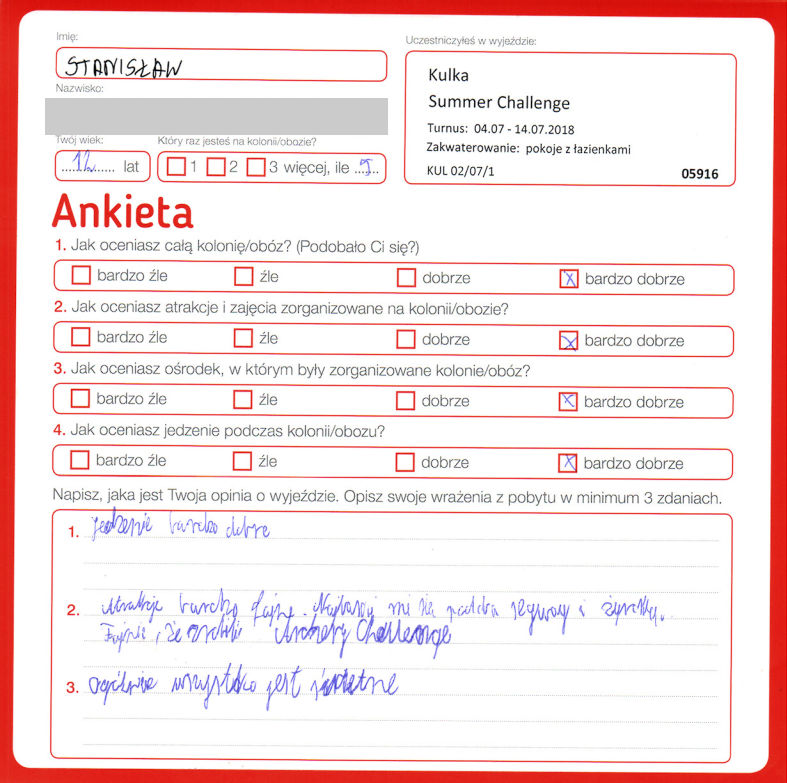 Imię:
STANISŁAW
Nazwisko:
Twój wiek:
12 lat
Który raz jesteś na kolonii/obozie?
1 2 3 więcej, ile 5
Uczestniczyłeś w wyjeździe:
Kulka
Summer Challenge
Turnus: 04.07 - 14.07.2018
Zakwaterowanie: pokoje z łazienkami
KUL 02/07/1 05916
Ankieta
1. Jak oceniasz całą kolonię/obóz? (Podobało Ci się?)
bardzo źle źle dobrze bardzo dobrze
2. Jak oceniasz atrakcje i zajęcia zorganizowane na kolonii/obozie?
bardzo źle źle dobrze bardzo dobrze
3. Jak oceniasz ośrodek, w którym były zorganizowane kolonie/obóz?
bardzo źle źle dobrze bardzo dobrze
4. Jak oceniasz jedzenie podczas kolonii/obozu?
bardzo źle źle dobrze bardzo dobrze
Napisz, jaka jest Twoja opinia o wyjeździe. Opisz swoje wrażenia z pobytu w minimum 3 zdaniach.
1. jedzenie bardzo dobre
2. Atrakcje bardzo fajne. Najbardziej mi się segwaye i
Fajnie, że zrobili Archery Challenge
3. Ogólnie wszystko jest świetne